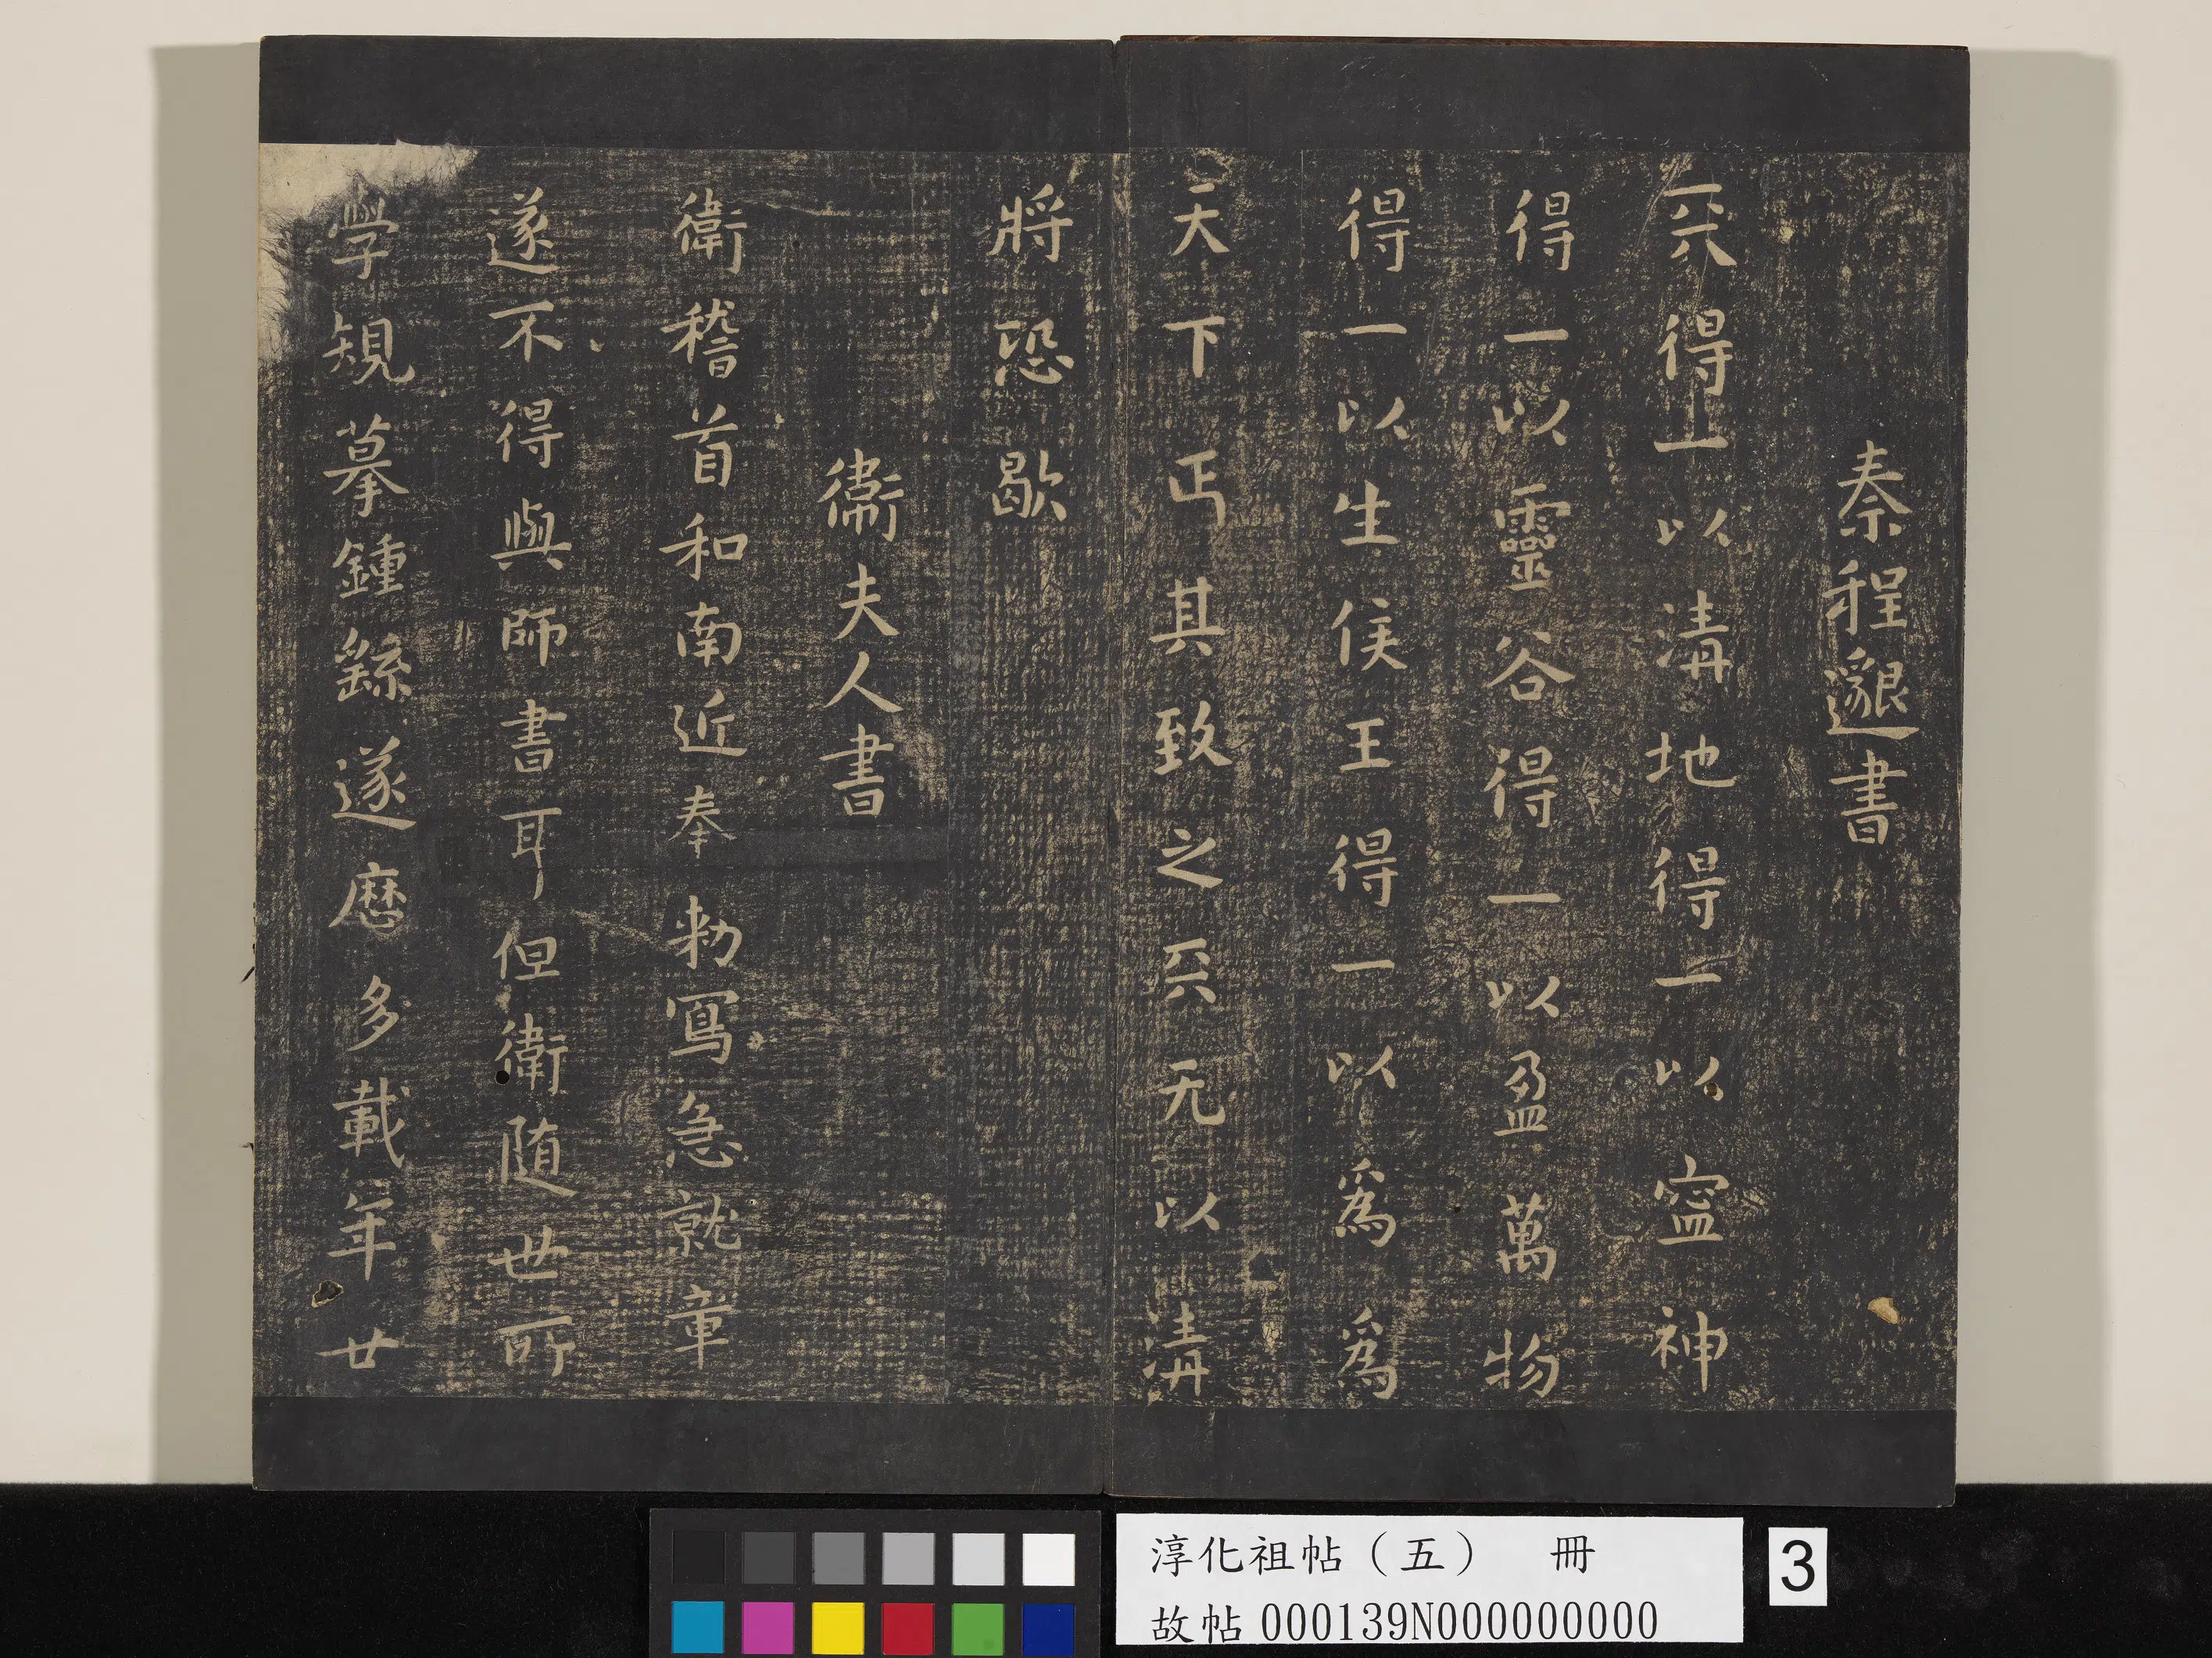 秦程邈書
天得一以淸地得一以寍神
得一以靈谷得一以盈萬物
得一以生侯王得一以爲爲
天下正其致之天无以淸
將恐歇
衞夫人書
衛稽首和南近奉勅寫急就章
遂不得與師書耳但衛随世所
學規摹鍾繇遂歷多載年廿
淳化祖帖（五） 冊
故帖000139N000000000
3